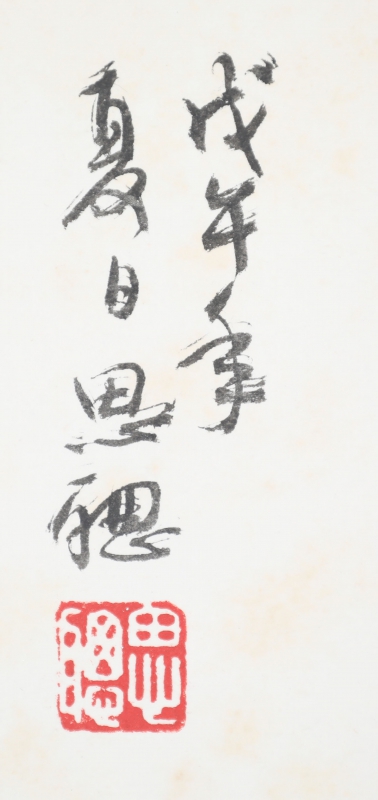 戊午年
夏日思聰
思聰